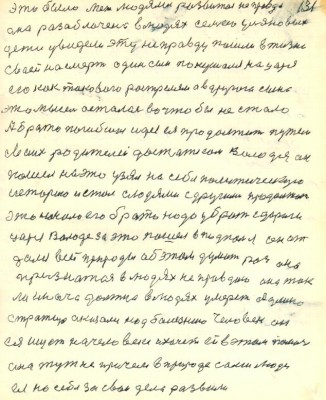 это было меж людями развитая неправда 131
она разоблачена в людях семьею ульяновых
дети увидели эту неправду пошли в жизни
своей на смерть один сын покушался на царя
его как такового растреляли а второго сына
это мысли остались во что бы не стало
А брата погибшаго идея продолжить путем
своих родителей досталась Володя он
пошел на это узял на себя политическую
историю и стал с людями с другими продолжать
это начало его брата надо убрать с дороги
царя Володе за это пошел в подпольл он от
дали всей природы об этом думал раз она
признатая в людях не правдою она так
ли иначе должна в людях умереть
страницо сказали над болезнию человек он
ея ищет на человеке и хочет ей в этом помоч
она тут не причем в природе сами люди
ея на себя за свои дела развели